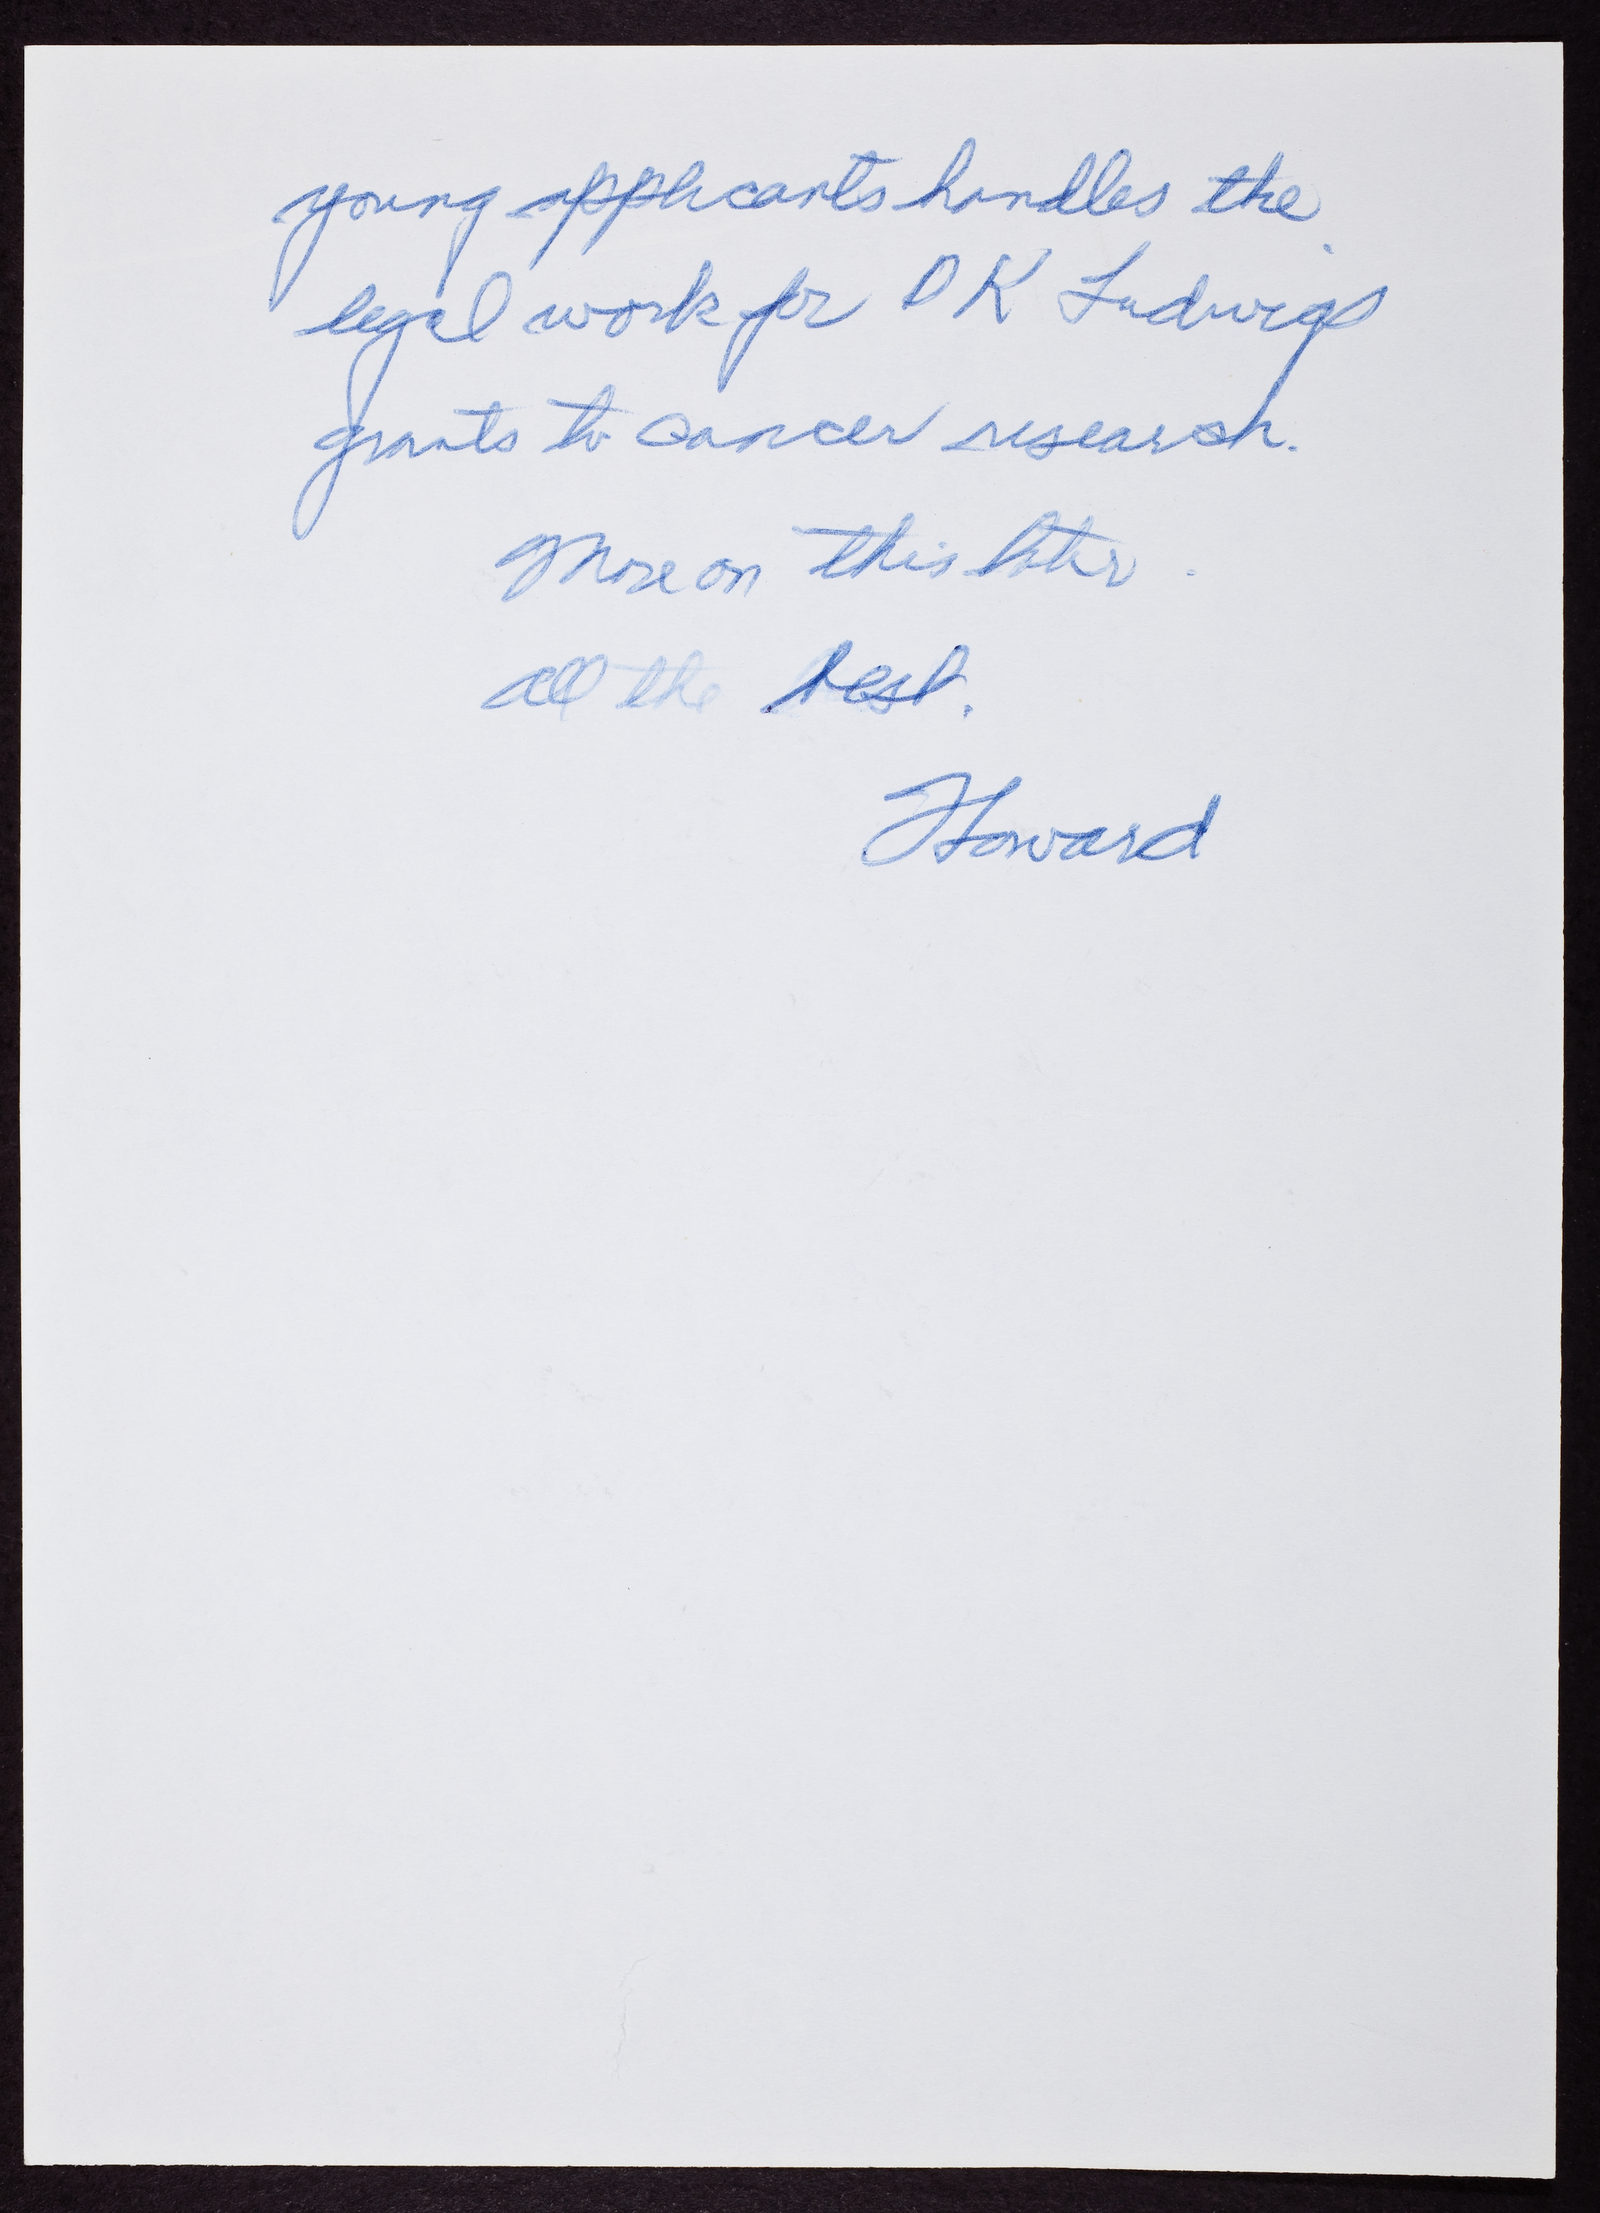 young applicants handles the
legal work for D K Ludwigs
grants to cancer research.
More on this later.
all the best.
Howard